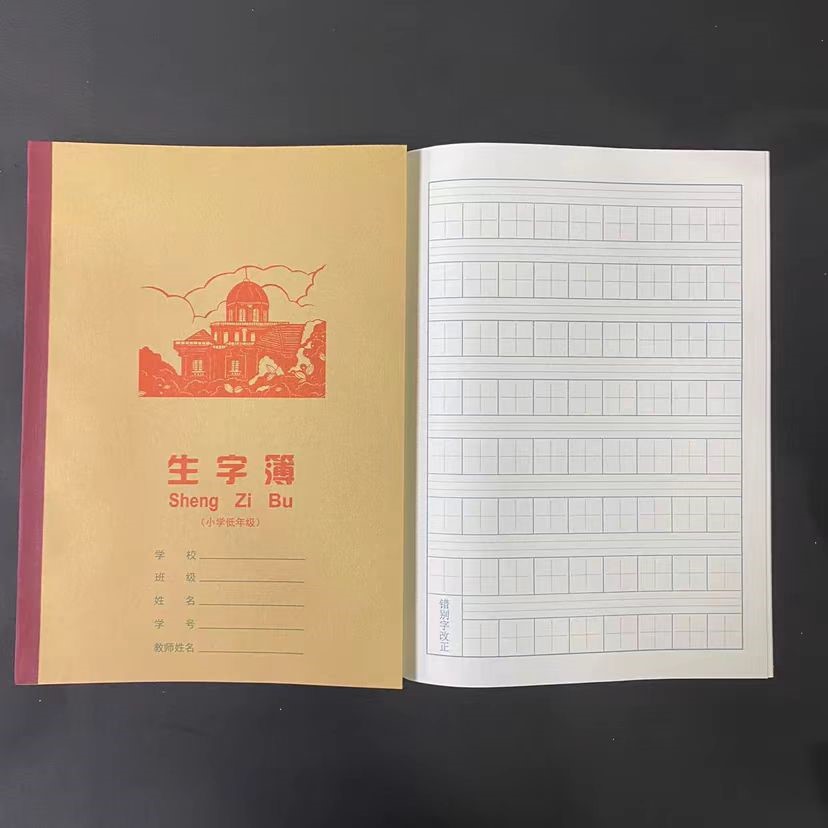 生字簿
Sheng Zi Bu
(小学低年级)
学 校
班 级
姓 名
学 号
教师姓名
错别字改正